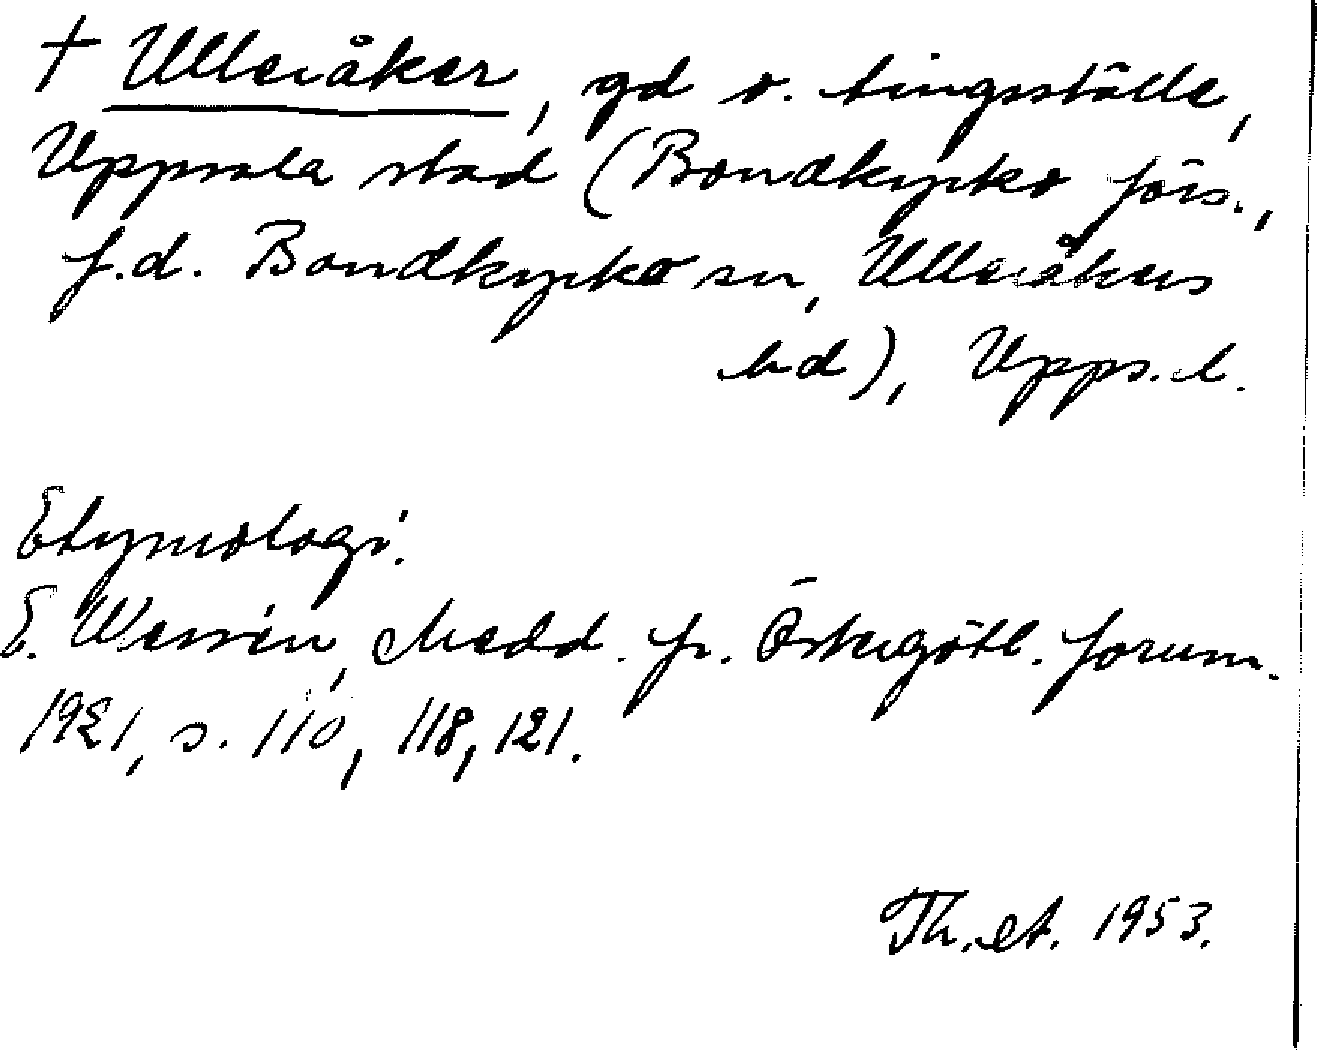 † Ulleråker, gd o. tingsställe,
Uppsala stad (Bondkyrko förs.,
f.d. Bondkyrko sn, Ulleråkers
hd), Upps. l.
Etymologi.
E. Wessén, Medd. fr. Östergötl. fornm.
1921, s. 110, 118, 121.
Th. et. 1953.